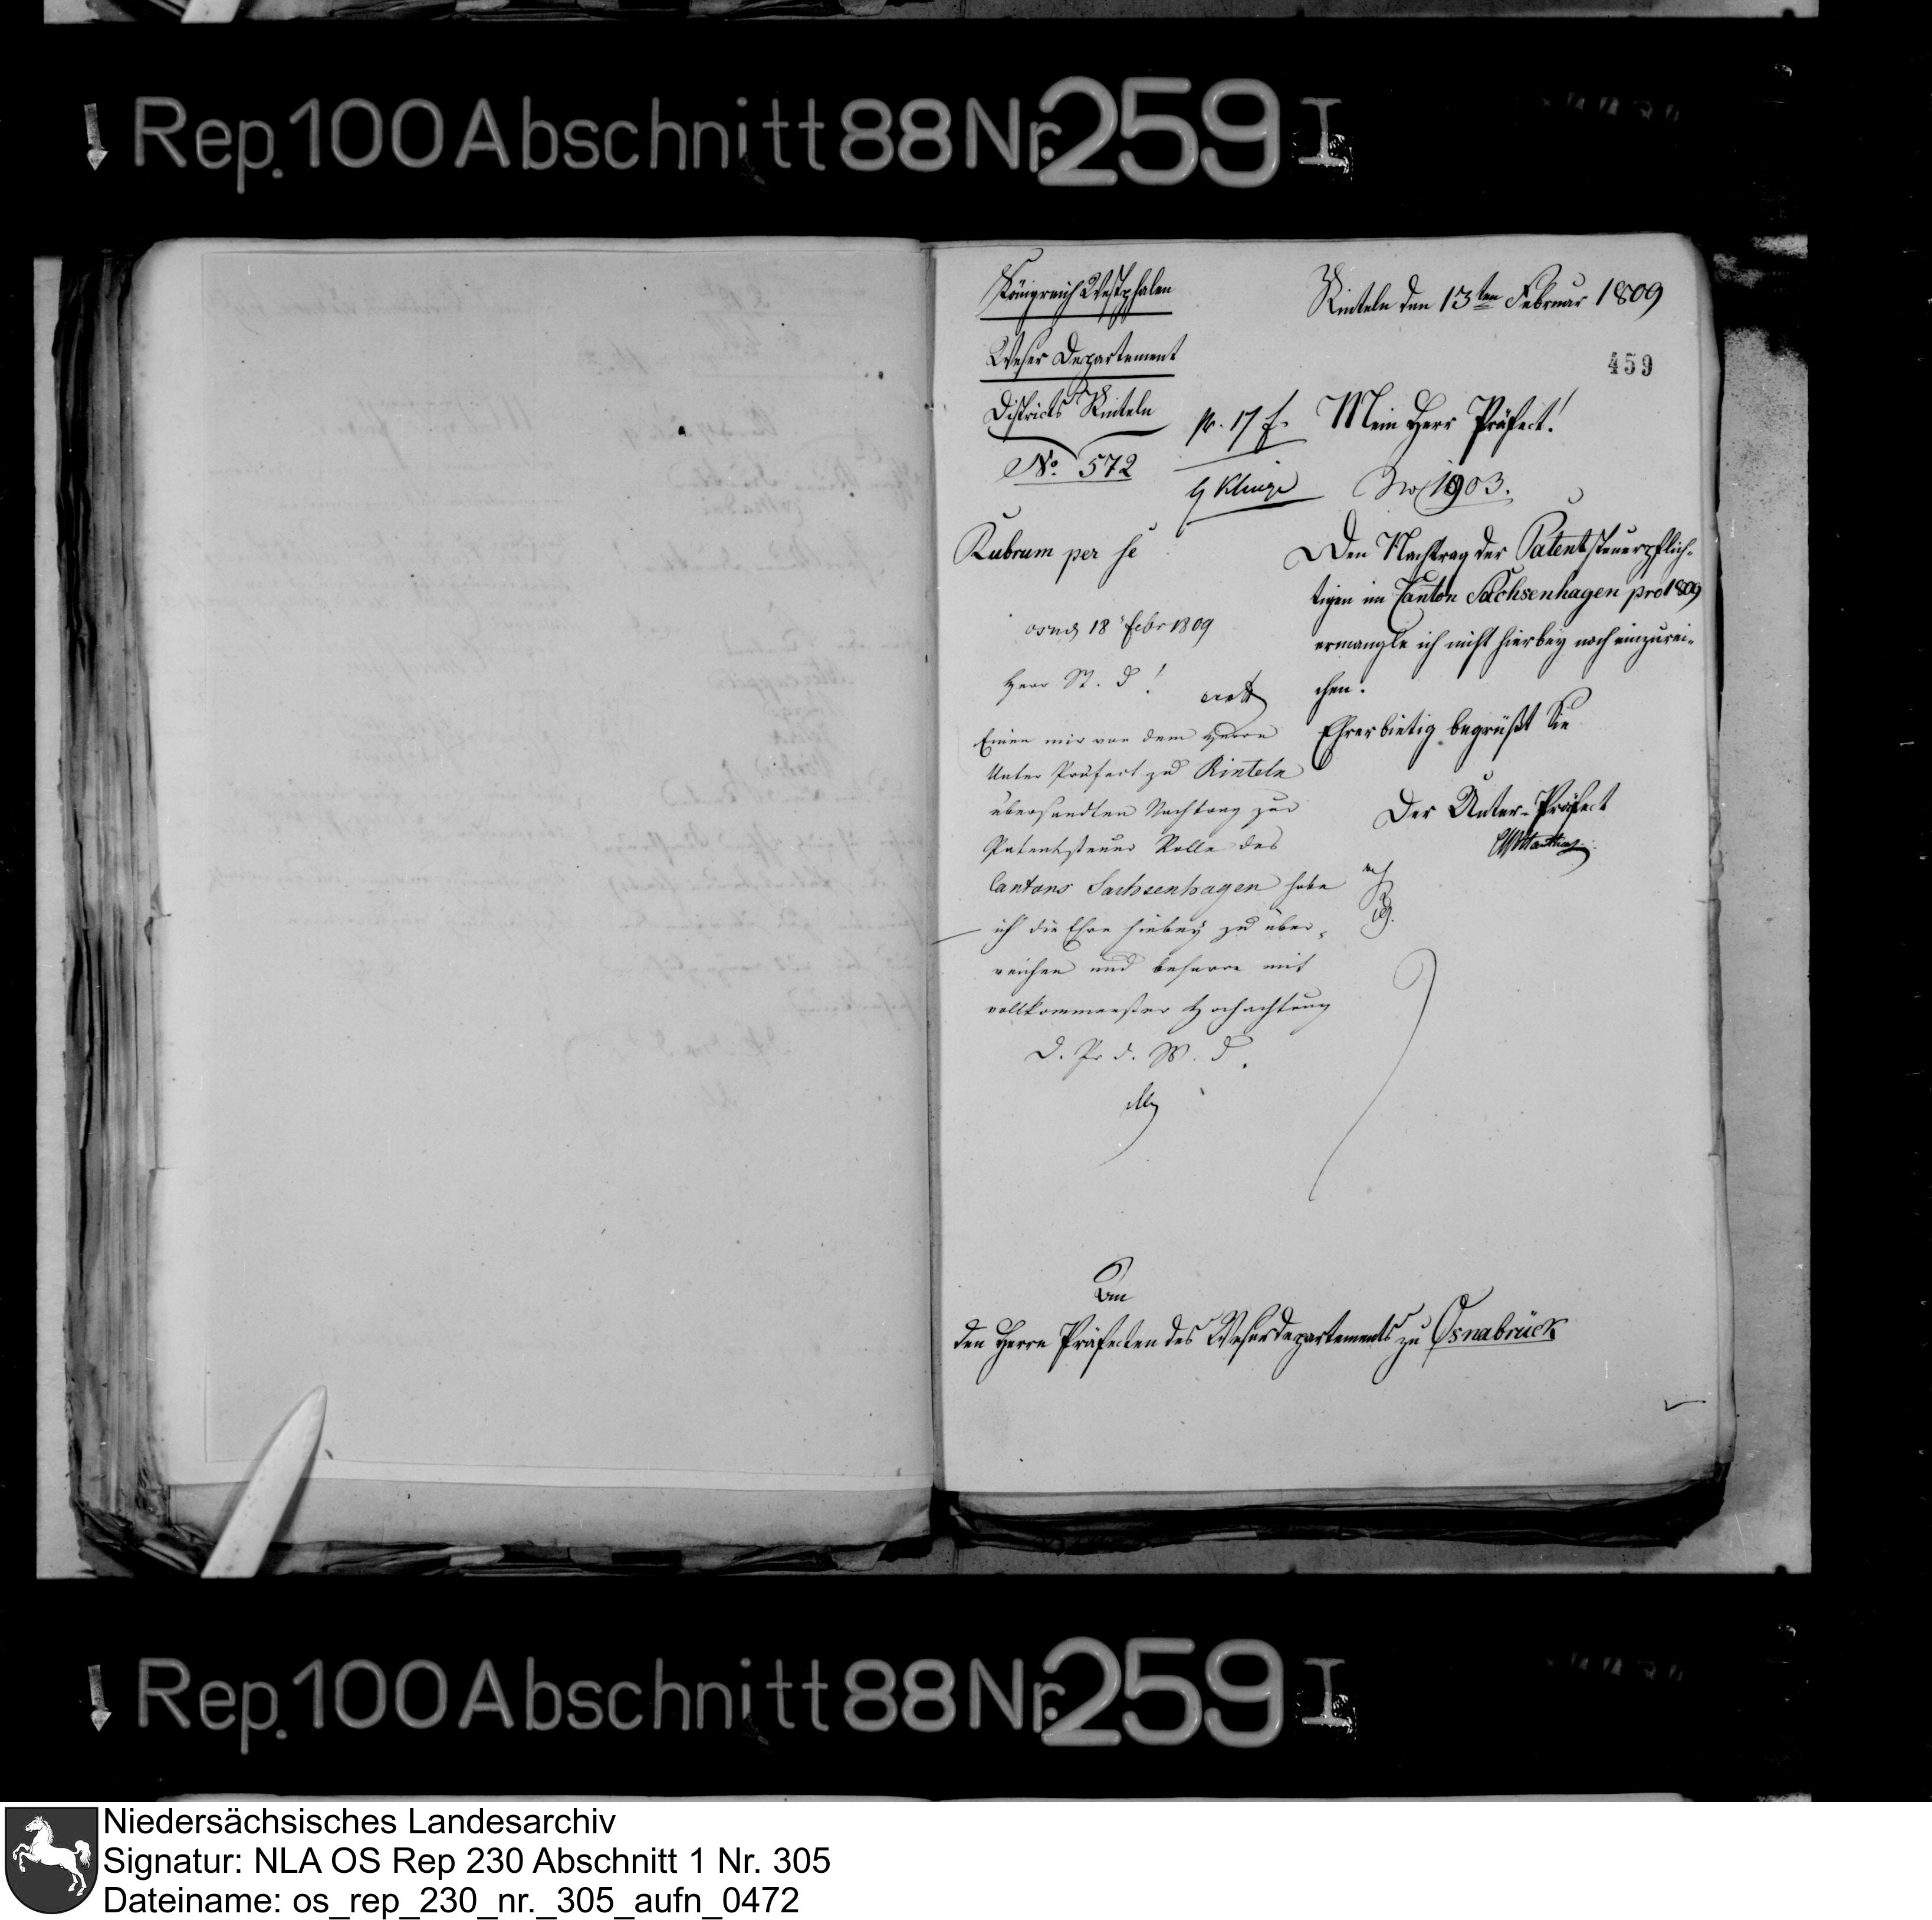 Rep. 100 Abschnitt 88 Nr. 259 I
Königreich Westphalen
Weser Departement
Districts Rinteln
No. 572
Rinteln den 13ten Februar 1809
459
pr. 17 f.
Mein Herr Präfect!
No 1903.
Rubrum per se
Den Nachtrag der Patentsteuerpflich-
tigen im Canton Sachsenhagen pro 1809
ermangle ich nicht hierbey noch einzurei-
chen.
Ehrerbietig begrüßt Sie
Der Unter-Präfect
osnb 18 Febr 1809
Herr St. D!
Einen mir von dem Herrn
Unter Präfect zu Rinteln
übersandten Nachtrag zur
Patentsteuer Rolle des
Cantons Sachsenhagen habe
ich die Ehre hiebey zu über-
reichen und beharre mit
vollkommenster Hochachtung
D. Pr. d. W. D.
An
den Herrn Präfecten des Weserdepartements zu Osnabrück
Rep. 100 Abschnitt 88 Nr. 259 I
Niedersächsisches Landesarchiv
Signatur: NLA OS Rep 230 Abschnitt 1 Nr. 305
Dateiname: os_rep_230_nr._305_aufn_0472